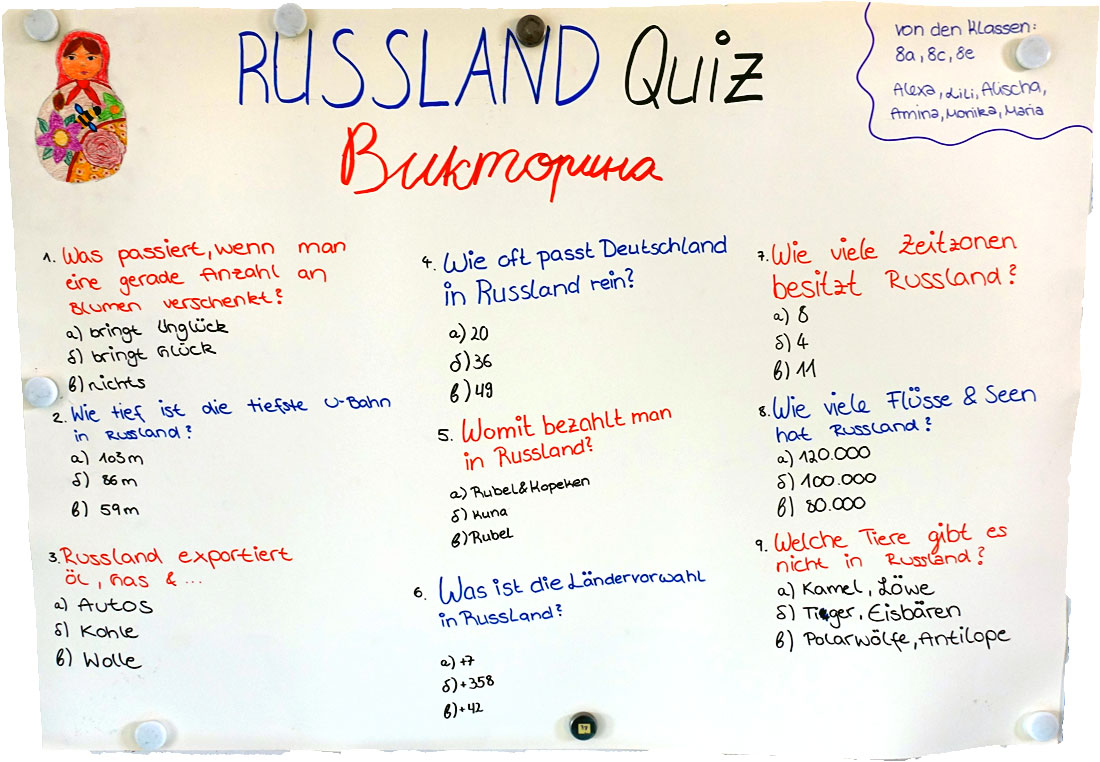 RUSSLAND Quiz
Викторина
von den Klassen:
8a, 8c, 8e
Alexa, Lili, Alischa,
Amina, Monika, Maria
1. Was passiert, wenn man
eine gerade Anzahl an
Blumen verschenkt?
а) bringt Unglück
б) bringt Glück
в) nichts
2. Wie tief ist die tiefste U-Bahn
in Russland?
а) 103m
б) 86m
в) 59m
3. Russland exportiert
Öl, Gas & ...
а) Autos
б) Kohle
в) Wolle
4. Wie oft passt Deutschland
in Russland rein?
а) 20
б) 36
в) 49
5. Womit bezahlt man
in Russland?
а) Rubel & Kopeken
б) Kuna
в) Rubel
6. Was ist die Ländervorwahl
in Russland?
а) +7
б) +358
в) +42
7. Wie viele Zeitzonen
besitzt Russland?
а) 8
б) 4
в) 11
8. Wie viele Flüsse & Seen
hat Russland?
а) 120.000
б) 100.000
в) 80.000
9. Welche Tiere gibt es
nicht in Russland?
а) Kamel, Löwe
б) Tiger, Eisbären
в) Polarwölfe, Antilope